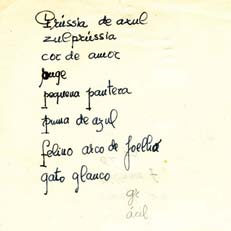 Prússia de azul
zulprússia
cor de amor
ruge
pequena pantera
puma de azul
felino arco de joelho
gato glauco
gr
ácil